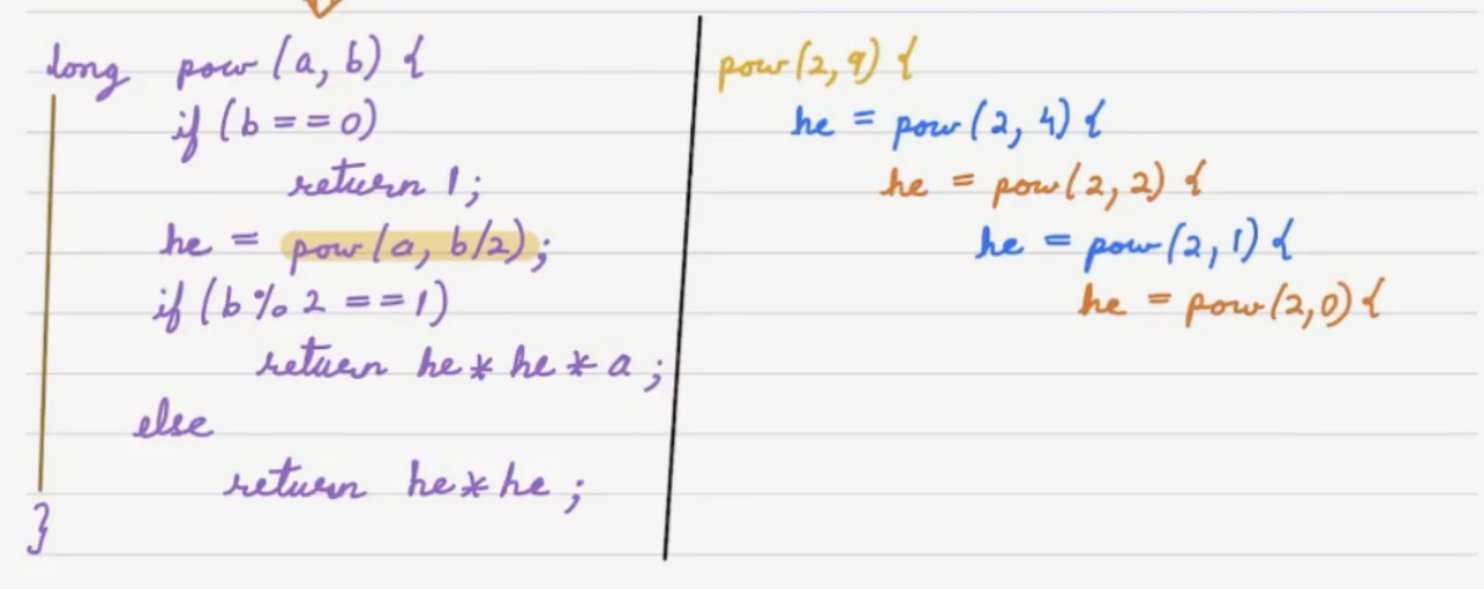 long pow (a, b) {
if (b == 0)
return 1;
he = pow(a, b/2);
if (b % 2 == 1)
return he * he * a ;
else
return he * he ;
}
pow(2, 9) {
he = pow(2, 4) {
he = pow(2, 2) {
he = pow(2, 1) {
he = pow(2, 0) {